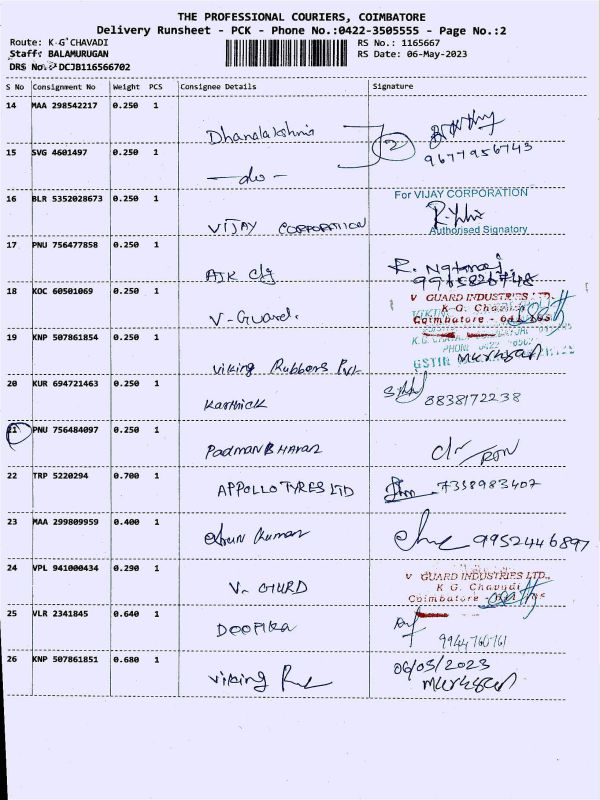 THE PROFESSIONAL COURIERS, COIMBATORE
Delivery Runsheet - PCK - Phone No.:0422-3505555 - Page No.:2
Route: K-G CHAVADI
RS No.: 1165667
Staff: BALAMURUGAN
RS Date: 06-May-2023
DRS No.: DCJB116566702
S No Consignment No Weight PCS Consignee Details Signature
14 MAA 298542217 0.250 1 Dhanalakshmi 2
9677956743
15 SVG 4601497 0.250 1 - do -
16 BLR 5352028673 0.250 1 VIJAY CORPORATION
For VIJAY CORPORATION
Authorised Signatory
17 PNU 756477858 0.250 1 AJK clg R. Natraj
9965826748
18 KOC 60501069 0.250 1 V-Guard.
V GUARD INDUSTRIES LTD.,
K G. Chavadi
Coimbatore - 641 105
19 KNP 507861854 0.250 1 Viking Rubbers Pvt
GSTIN Murugan
20 KUR 694721463 0.250 1 Karthick 8838172238
21 PNU 756484097 0.250 1 PadmanBHavan
22 TRP 5220294 0.700 1 APPOLLO TYRES LTD 7358983407
23 MAA 299809959 0.400 1 Arun Kumar 9952446897
24 VPL 941000434 0.290 1 V- GURD
V GUARD INDUSTRIES LTD.,
K G. Chavadi
Coimbatore - 641 105
25 VLR 2341845 0.640 1 DEEPIKA
9944760761
26 KNP 507861851 0.680 1 Viking 06/05/2023
Murugan